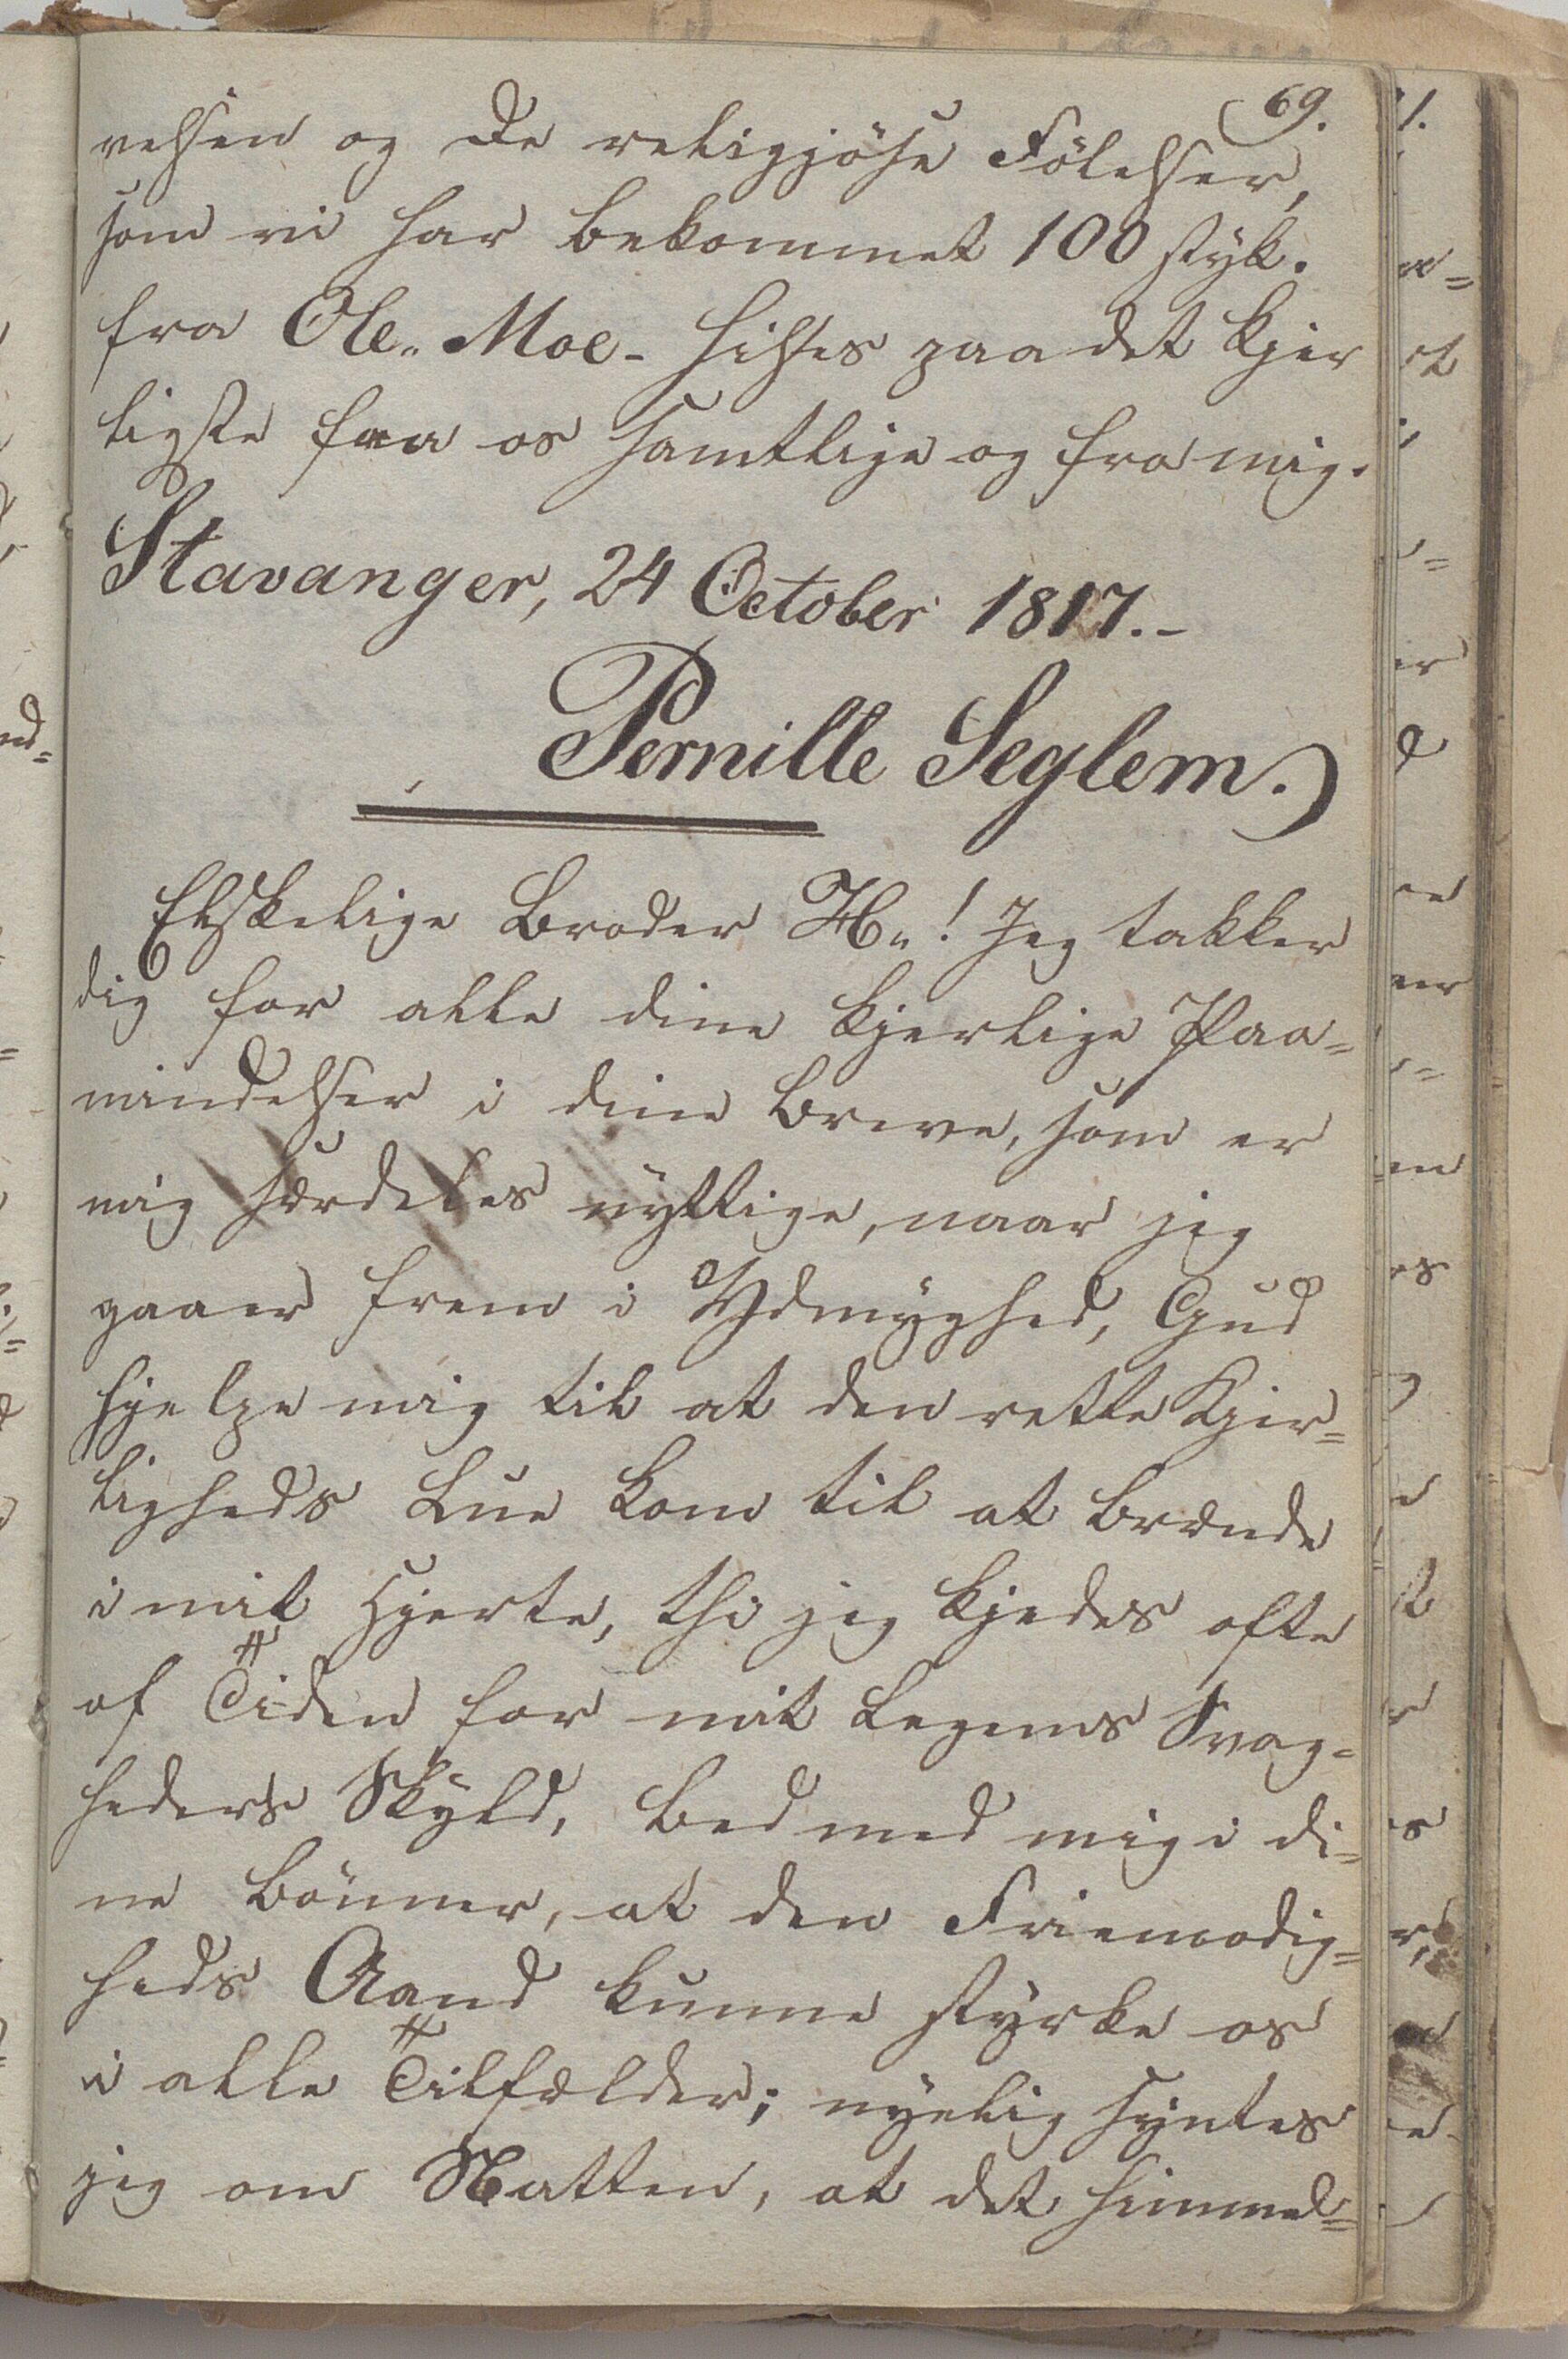 69.
velsen og de religjöse Fölelser,
som vi har bekommet 100 styk.
fra Ole. Moe - hilses paa det kjer
ligste fra os samtlige og fra mig.
Stavanger, 24 October 1817.-
Pernille Seglem.)
Elskelige Broder H.! Jeg takker
dig for alle dine kjerlige Paa=
mindelser i dine Breve, som er
mig særdeles nyttige, naar jeg
gaaer frem i Ydmyghed, Gud
hjelpe mig til at den rette Kjer=
ligheds Lue kom til at brænde
i mit Hjerte, thi jeg kjedes ofte
af Tiden for mit Legems Svag=
heders Skyld, bed med mig i di=
ne Bönner, at den Friemodig=
heds Aand kunne styrke os
i alle Tilfælder; nyelig syntes
jeg om Natten, at det himmel=